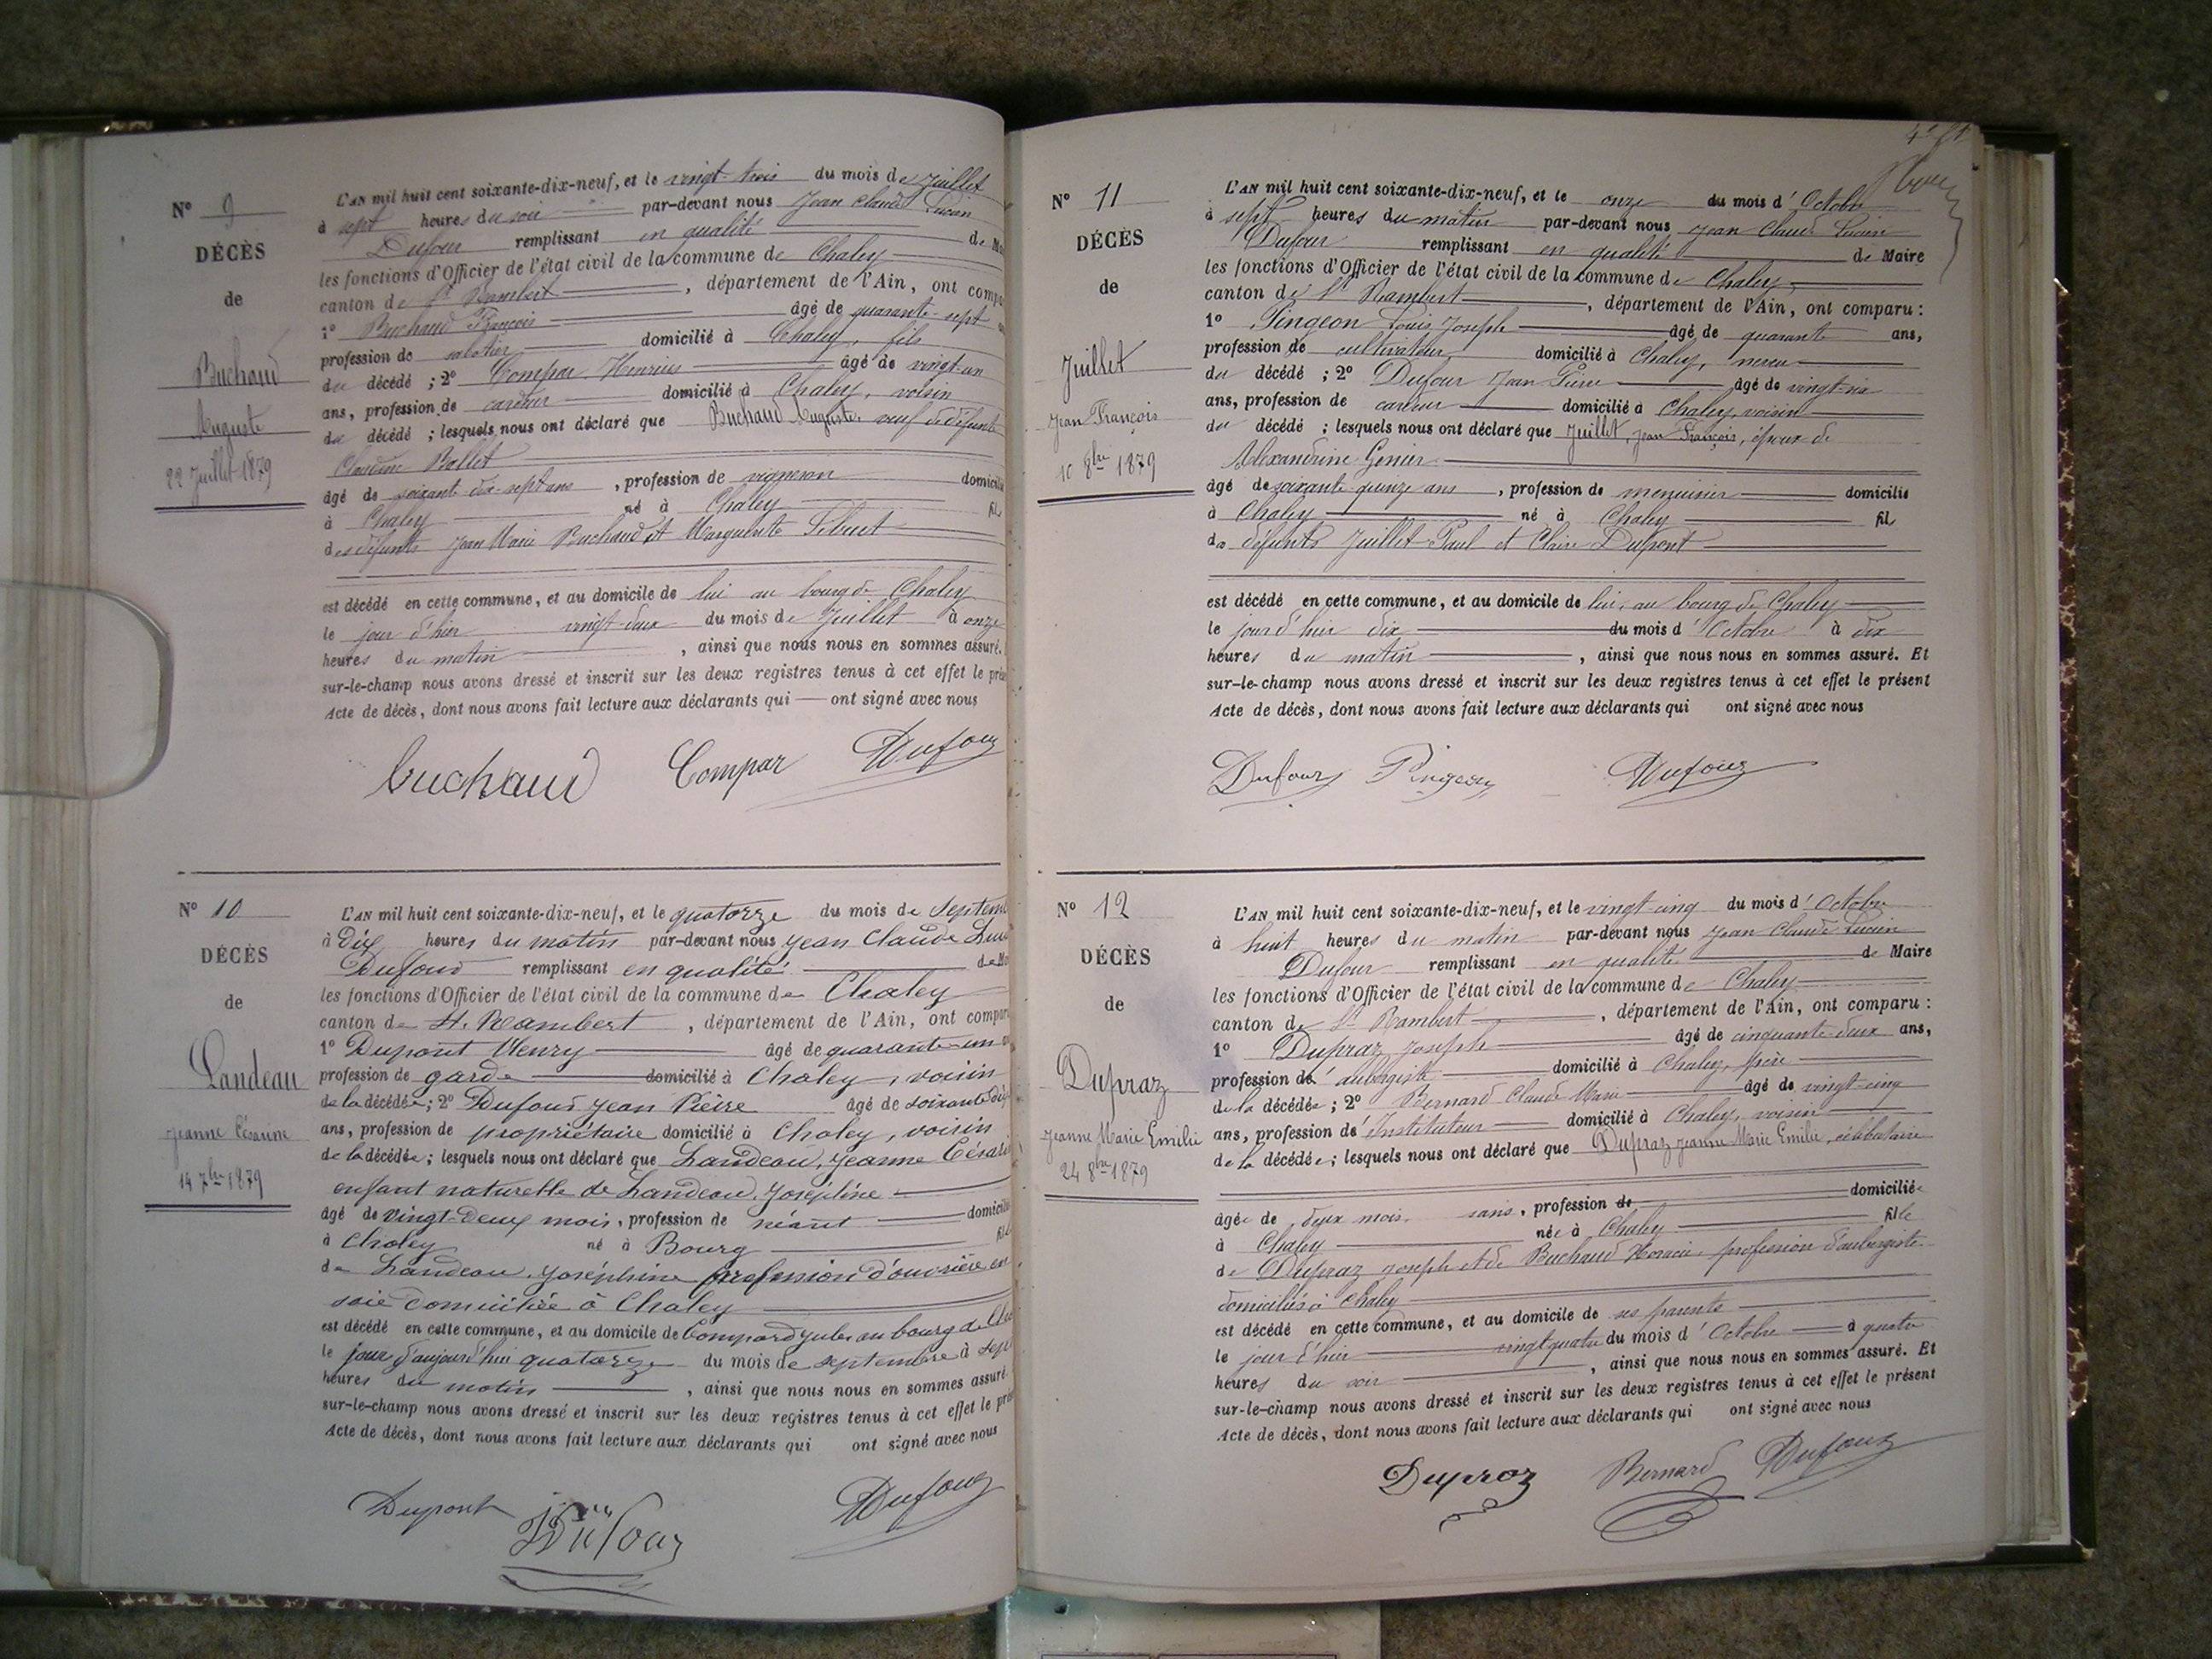 N° 9
DÉCÈS
de
Buchaud
Auguste
22 Juillet 1879
L'AN mil huit cent soixante-dix-neuf, et le vingt-trois du mois de Juillet
à sept heures du soir par-devant nous Jean Claude Lucien
Dufour remplissant en qualité de
les fonctions d'Officier de l'état civil de la commune de Chaley
canton de St Rambert, département de l'Ain, ont
1° Buchaud François âgé de quarante-sept
profession de sabotier domicilié à Chaley, fils
du décédé ; 2° Compar Henrius âgé de vingt-un
ans, profession de cardeur domicilié à Chaley, voisin
du décédé ; lesquels nous ont déclaré que Buchaud Auguste, veuf de défunte
Claudine Ballet
âgé de soixante dix-sept ans, profession de vigneron
à Chaley né à Chaley fils
des défunts Jean Marie Buchaud et Marguerite
est décédé en cette commune, et au domicile de lui au bourg de Chaley
le jour d'hier vingt-deux du mois de Juillet à onze
heures du matin, ainsi que nous nous en sommes assuré.
sur-le-champ nous avons dressé et inscrit sur les deux registres tenus à cet effet le
Acte de décès, dont nous avons fait lecture aux déclarants qui — ont signé avec nous
buchaud Compar Dufour
N° 10
DÉCÈS
de
Landeau
Jeanne Césarine
14 7bre 1879
L'AN mil huit cent soixante-dix-neuf, et le quatorze du mois de
à Dix heures du matin par-devant nous Jean Claude
Dufour remplissant en qualité
les fonctions d'Officier de l'état civil de la commune de Chaley
canton de St. Rambert, département de l'Ain, ont
1° Dupont Henry âgé de quarante-un
profession de garde domicilié à Chaley, voisin
de la décédée ; 2° Dufour Jean Pierre âgé de soixante
ans, profession de propriétaire domicilié à Chaley, voisin
de la décédée ; lesquels nous ont déclaré que Landeau, Jeanne
enfant naturelle de Landeau, Joséphine
âgé de vingt-deux mois, profession de néant
à Chaley né à Bourg
de Landeau, Joséphine profession d'ouvrière en
soie domiciliée à Chaley
est décédé en cette commune, et au domicile de Compard Jules au bourg de
le jour d'aujourd'hui quatorze du mois de septembre à
heures du matin, ainsi que nous nous en sommes assuré
sur-le-champ nous avons dressé et inscrit sur les deux registres tenus à cet effet le
Acte de décès, dont nous avons fait lecture aux déclarants qui ont signé avec nous
Dupont Dufour Dufour
N° 11
DÉCÈS
de
Juillet
Jean François
10 8bre 1879
L'AN mil huit cent soixante-dix-neuf, et le onze du mois d'Octobre
à sept heures du matin par-devant nous Jean Claude Lucien
Dufour remplissant en qualité de Maire
les fonctions d'Officier de l'état civil de la commune de Chaley
canton de St Rambert, département de l'Ain, ont comparu :
1° Pingeon Louis Joseph âgé de quarante ans,
profession de cultivateur domicilié à Chaley, neveu
du décédé ; 2° Dufour Jean Pierre âgé de vingt-six
ans, profession de cardeur domicilié à Chaley, voisin
du décédé ; lesquels nous ont déclaré que Juillet, Jean François, époux de
Alexandrine Genier
âgé de soixante-quinze ans, profession de menuisier domicilié
à Chaley né à Chaley fils
de défunts Juillet Paul et Claire Dupont
est décédé en cette commune, et au domicile de lui, au bourg de Chaley
le jour d'hier dix du mois d'Octobre à dix
heures du matin, ainsi que nous nous en sommes assuré. Et
sur-le-champ nous avons dressé et inscrit sur les deux registres tenus à cet effet le présent
Acte de décès, dont nous avons fait lecture aux déclarants qui ont signé avec nous
Dufour Pingeon Dufour
N° 12
DÉCÈS
de
Dupraz
Jeanne Marie Emilie
24 8bre 1879
L'AN mil huit cent soixante-dix-neuf, et le vingt-cinq du mois d'Octobre
à huit heures du matin par-devant nous Jean Claude Lucien
Dufour remplissant en qualité de Maire
les fonctions d'Officier de l'état civil de la commune de Chaley
canton de St Rambert, département de l'Ain, ont comparu :
1° Dupraz Joseph âgé de cinquante-deux ans,
profession d'aubergiste domicilié à Chaley, père
de la décédée ; 2° Bernard Claude Marie âgé de vingt-cinq
ans, profession d'Instituteur domicilié à Chaley, voisin
de la décédée ; lesquels nous ont déclaré que Dupraz Jeanne Marie Emilie, célibataire
âgée de deux mois, sans, profession de domiciliée
à Chaley née à Chaley fille
de Dupraz Joseph et de Buchaud profession d'aubergiste
domiciliés à Chaley
est décédé en cette commune, et au domicile de ses parents
le jour d'hier vingt-quatre du mois d'Octobre à quatre
heures du soir, ainsi que nous nous en sommes assuré. Et
sur-le-champ nous avons dressé et inscrit sur les deux registres tenus à cet effet le présent
Acte de décès, dont nous avons fait lecture aux déclarants qui ont signé avec nous
Dupraz Bernard Dufour